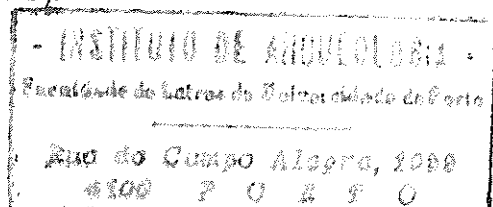 - INSTITUTO DE ARQUEOLOGIA -
Faculdade de Letras da Universidade do Porto
Rua do Campo Alegre, 1055
4100 P O R T O